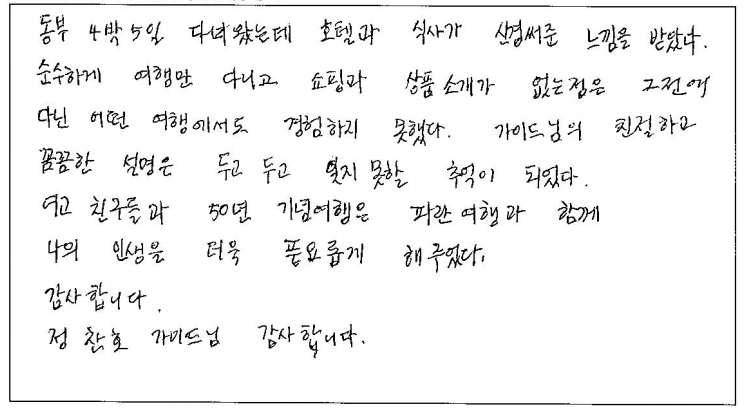 동부 4박 5일 다녀왔는데 호텔과 식사가 신경써준 느낌을 받았다.
순수하게 여행만 다니고 쇼핑과 상품소개가 없는점은 그전에
다닌 어떤 여행에서도 경험하지 못했다. 가이드님의 친절하고
꼼꼼한 설명은 두고 두고 잊지 못할 추억이 되었다.
여고 친구들과 50년 기념여행은 파란여행과 함께
나의 인생을 더욱 풍요롭게 해주었다.
감사합니다.
정찬호 가이드님 감사합니다.